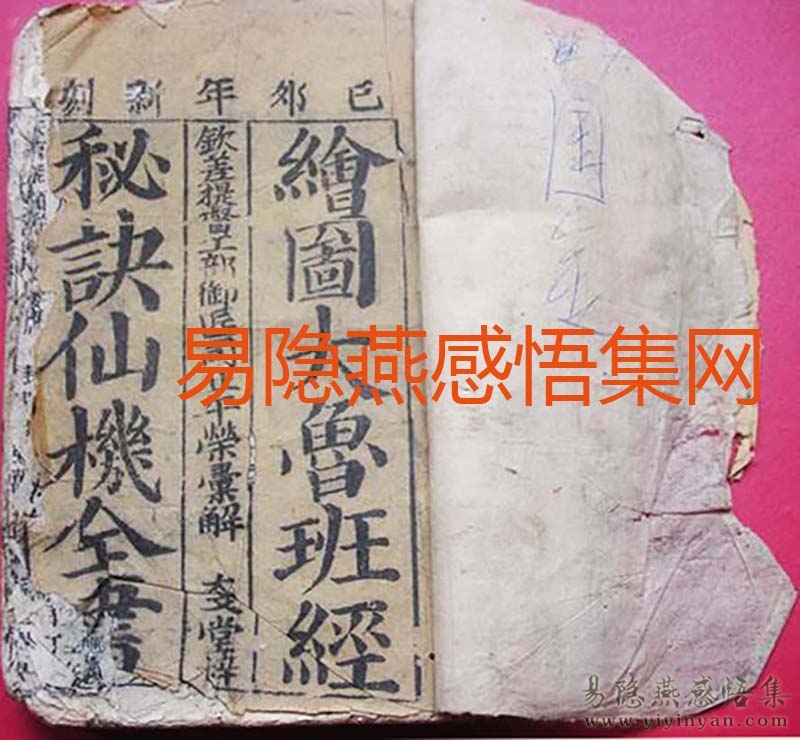 己卯年新刻
繪圖魯班經
欽差提督工部御匠司午榮彙解 堂梓
秘訣仙機全書
易隐燕感悟集网
易隐燕感悟集
www.yiyinyan.com